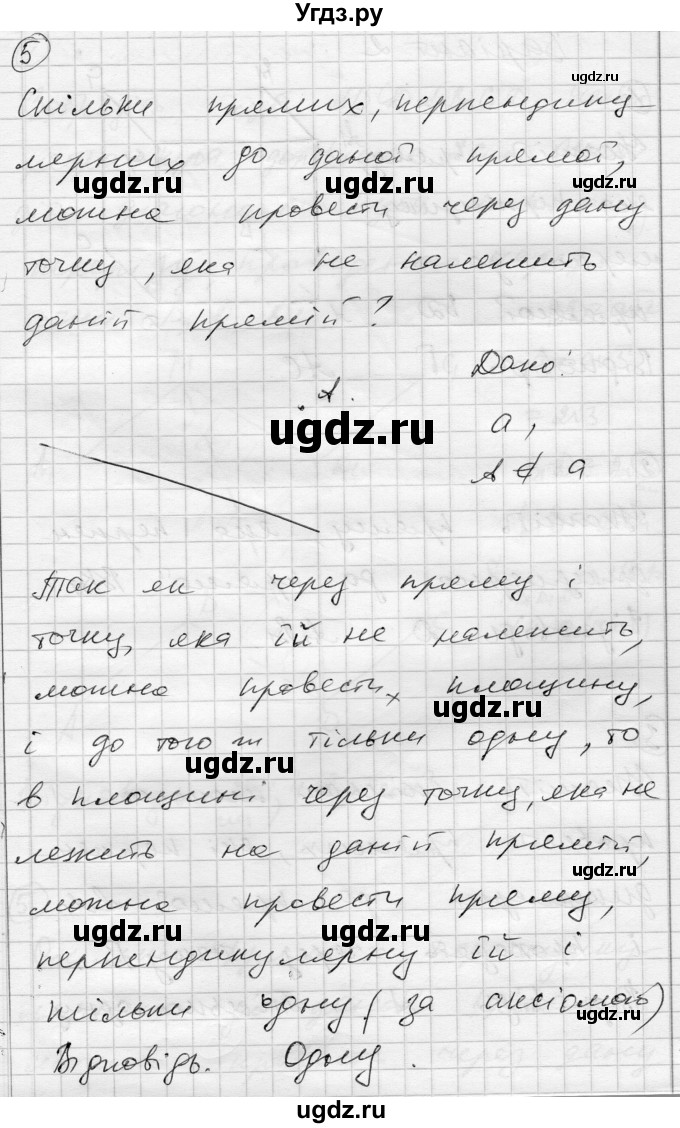 Угдз.ру
5
ugdz.ru
Скільки прямих, перпендику-
лярних до даної прямої,
ugdz.ru ugdz.ru ugdz.ru
можна провести через дану
точку, яка не належить
даній прямій?
Дано:
A.
ugdz.ru
a,
A ∉ a
Так як через пряму і
точку, яка їй не належить,
можна провести площину,
ugdz.ru
і до того ж тільки одну, то
ugdz.ru
в площині через точку, яка не
лежить на даній прямій,
ugdz.ru
можна провести пряму,
ugdz.ru ugdz.ru
перпендикулярну їй і
тільки одну (за аксіомою)
ugdz.ru
Відповідь. Одну.
ugdz.ru